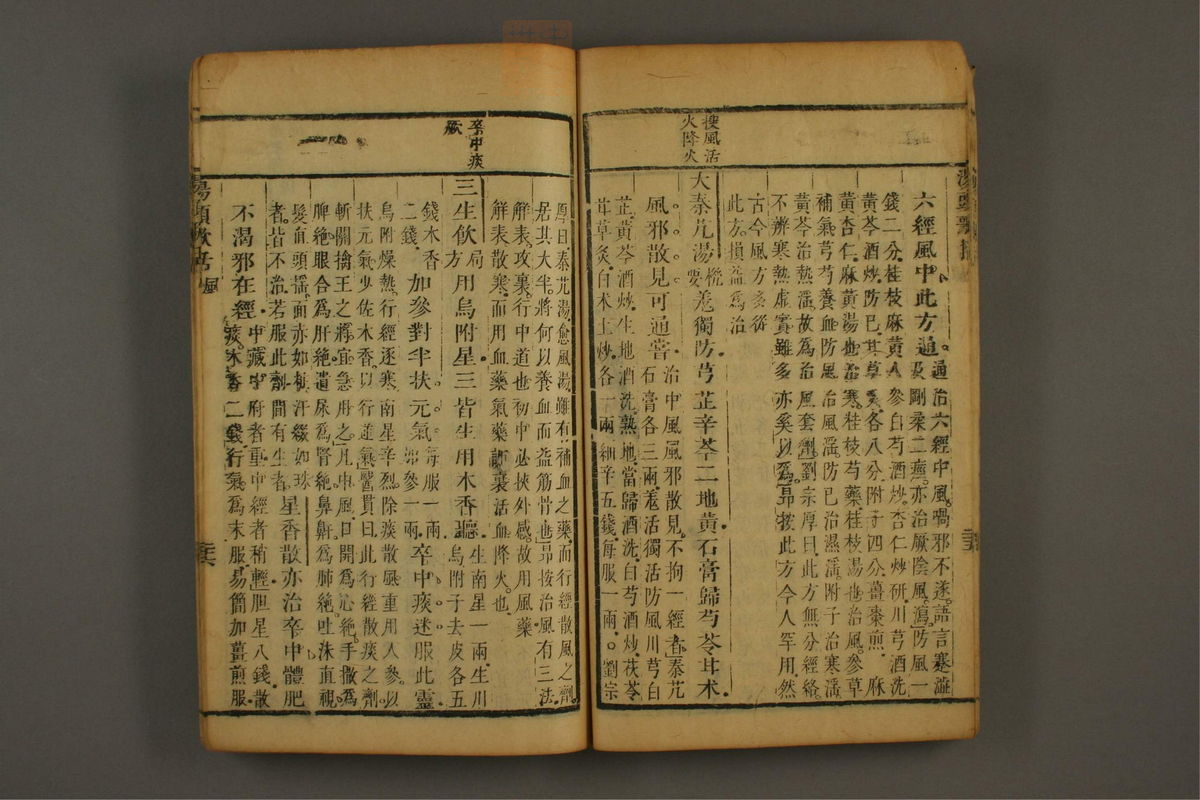 搜風活
火降火
六經風中此方通。通治六經中風喎邪不遂語言蹇澁
及剛柔二痙亦治厥陰風瀉防風一
錢二分桂枝麻黃人參白芍酒炒杏仁炒研川芎酒洗
黃芩酒炒防已甘草炙各八分附子四分薑棗煎 麻
黃杏仁麻黃湯也治寒桂枝芍藥桂枝湯也治風參草
補氣芎芍養血防風治風淫防已治濕淫附子治寒淫
黃芩治熱淫故為治風套劑劉宗厚曰此方無分經絡
不辨寒熱虛實雖多亦奚以為昂按此方今人罕用然
古今風方多從
此方損益為治
大秦艽湯機要羗獨防芎芷辛芩二地黃石膏歸芍苓甘朮
風邪散見可通嘗治中風風邪散見不拘一經者秦艽
石膏各三兩羗活獨活防風川芎白
芷黃芩酒炒生地酒洗熟地當歸酒洗白芍酒炒茯苓
甘草炙白朮土炒各一兩細辛五錢每服一兩。劉宗
卒中痰
厥
厚曰秦艽湯愈風湯雖有補血之藥而行經散風之劑
居其大半將何以養血而益筋骨也昂按治風有三法
解表攻裏行中道也初中必挾外感故用風藥
解表散寒而用血藥氣藥調裏活血降火也
三生飲局方用烏附星三皆生用木香聽生南星一兩生川
烏附子去皮各五
錢木香
二錢加參對半扶元氣每服一兩
加參一兩卒中痰迷服此靈
烏附燥熱行經逐寒南星辛烈除痰散風重用人參以
扶元氣少佐木香以行逆氣醫貫曰此行經散痰之劑
斬關擒王之將宜急用之凡中風口開為心絕手撒為
脾絕眼合為肝絕遺尿為腎絕鼻鼾為肺絕吐沫直視
髮直頭搖面赤如粧汗綴如珠
者皆不治若服此劑間有生者星香散亦治卒中體肥
不渴邪在經中藏中府者重中經者稍輕胆星八錢散
痰木香二錢行氣為末服易簡加薑煎服
湯頭歌括 風